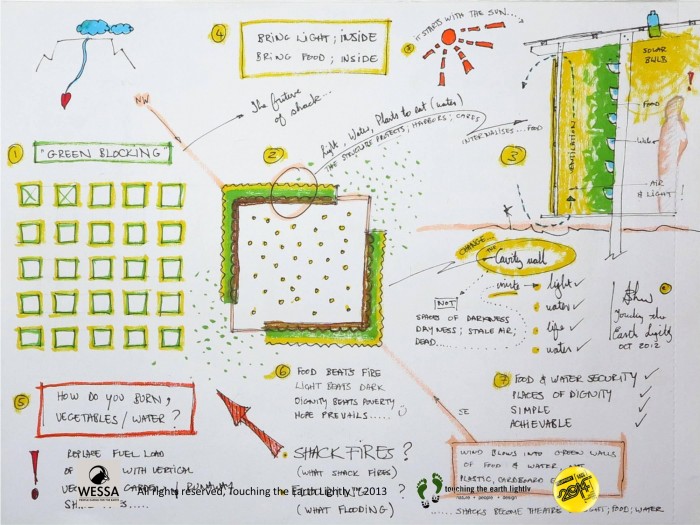 4
BRING LIGHT ; INSIDE
BRING FOOD ; INSIDE
IT STARTS WITH THE SUN....
SOLAR
BULB
NW
The future
of shack...
Light, Water, Plants to eat (water)
THE STRUCTURE PROTECTS; HARBORS; CARES
INTERNALISES...FOOD
1
"GREEN BLOCKING"
2
3
VENTILATION
Food
Water
AIR
& LIGHT
!
CHANGE THE
Cavity wall
invite → light ✓
water ✓
life ✓
water ✓
NOT
SPACES OF DARKNESS
DAYNESS ; STALE AIR ;
DEAD......
Touching the
Earth Lightly
OCT 2012
5
HOW DO YOU BURN,
VEGETABLES / WATER ?
6
FOOD BEATS FIRE
LIGHT BEATS DARK
DIGNITY BEATS POVERTY
HOPE PREVAILS.....
7
FOOD & WATER SECURITY ✓
PLACES OF DIGNITY ✓
SIMPLE ✓
ACHIEVABLE ✓
SE
! REPLACE FUEL LOAD
OF WITH VERTICAL
GARDEN /
SHACK FIRES ?
(WHAT SHACK FIRES)
?
(WHAT FLOODING)
WIND BLOWS INTO GREEN WALLS
OF FOOD & WATER,
PLASTIC, CARDBOARD
SHACKS BECOME THEATRES LIGHT; FOOD; WATER
WESSA
PEOPLE CARING FOR THE EARTH
All rights reserved, Touching the Earth Lightly © 2013
touching the earth lightly
nature • people • design
2014